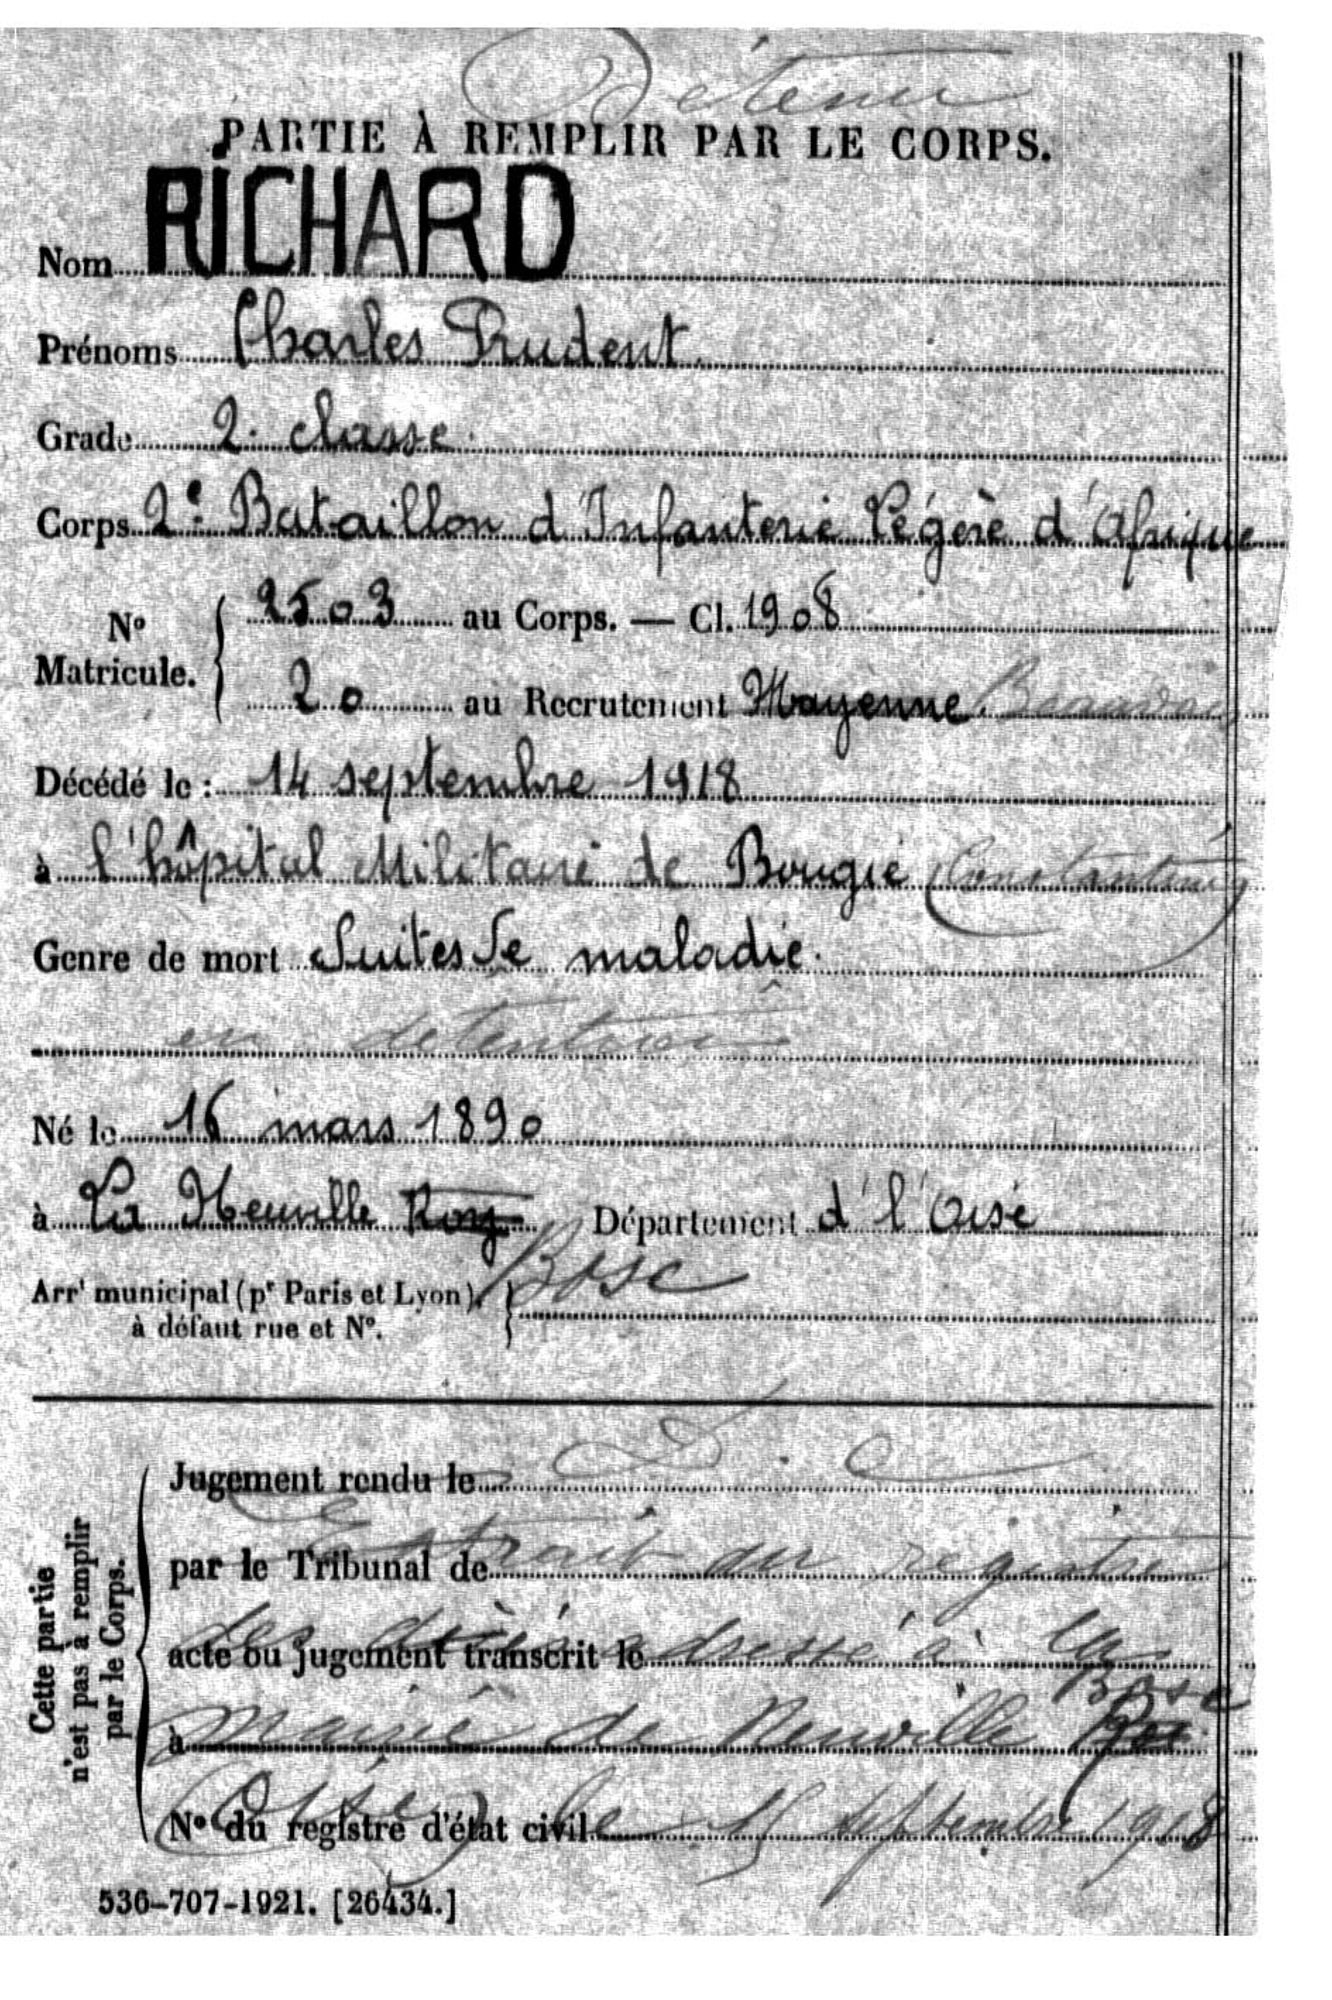 Détenu
PARTIE À REMPLIR PAR LE CORPS.
Nom RICHARD
Prénoms Charles Prudent.
Grade 2e classe.
Corps 2e Bataillon d'Infanterie Légère d'Afrique
No Matricule. { 2503 au Corps. — Cl. 1908
20 au Recrutement Mayenne. Beauvais
Décédé le : 14 septembre 1918
à l'hôpital Militaire de Bougie (Constantine)
Genre de mort Suites de maladie.
en détention
Né le 16 mars 1890
à La Neuville Roy Département d l'Oise
Bosc
Arrt municipal (pr Paris et Lyon), à défaut rue et No. }
Cette partie n'est pas à remplir par le Corps.
Jugement rendu le
par le Tribunal de
Extrait du registre
acte ou jugement transcrit le
des décès adressé à la
Bosc
à
Mairie de Neuville Roy
No du registre d'état civil
(Oise) le 15 septembre 1918
536-707-1921. [26434.]